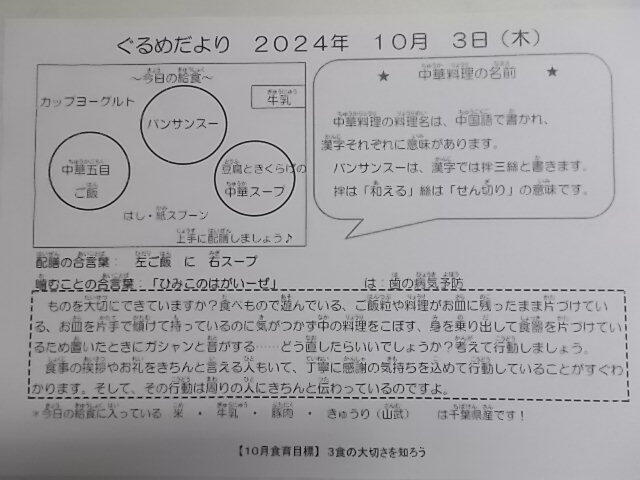 ぐるめだより 2024年 10月 3日(木)
~今日の給食~
カップヨーグルト
牛乳
バンサンスー
中華五目
ご飯
豆腐ときくらげの
中華スープ
はし・紙スプーン
上手に配膳しましょう♪
★ 中華料理の名前 ★
中華料理の料理名は、中国語で書かれ、
漢字それぞれに意味があります。
バンサンスーは、漢字では拌三絲と書きます。
拌は「和える」絲は「せん切り」の意味です。
配膳の合言葉: 左ご飯 に 右スープ
噛むことの合言葉:「ひみこのはがいーぜ」 は:歯の病気予防
ものを大切にできていますか?食べもので遊んでいる、ご飯粒や料理がお皿に残ったまま片づけてい
る、お皿を片手で傾けて持っているのに気がつかず中の料理をこぼす、身を乗り出して食器を片づけてい
るため置いたときにガシャンと音がする……どう直したらいいでしょうか?考えて行動しましょう。
食事の挨拶やお礼をきちんと言える人もいて、丁寧に感謝の気持ちを込めて行動していることがすぐわ
かります。そして、その行動は周りの人にきちんと伝わっているのですよ。
*今日の給食に入っている 米 ・ 牛乳 ・ 豚肉 ・ きゅうり(山武) は千葉県産です!
【10月食育目標】 3食の大切さを知ろう